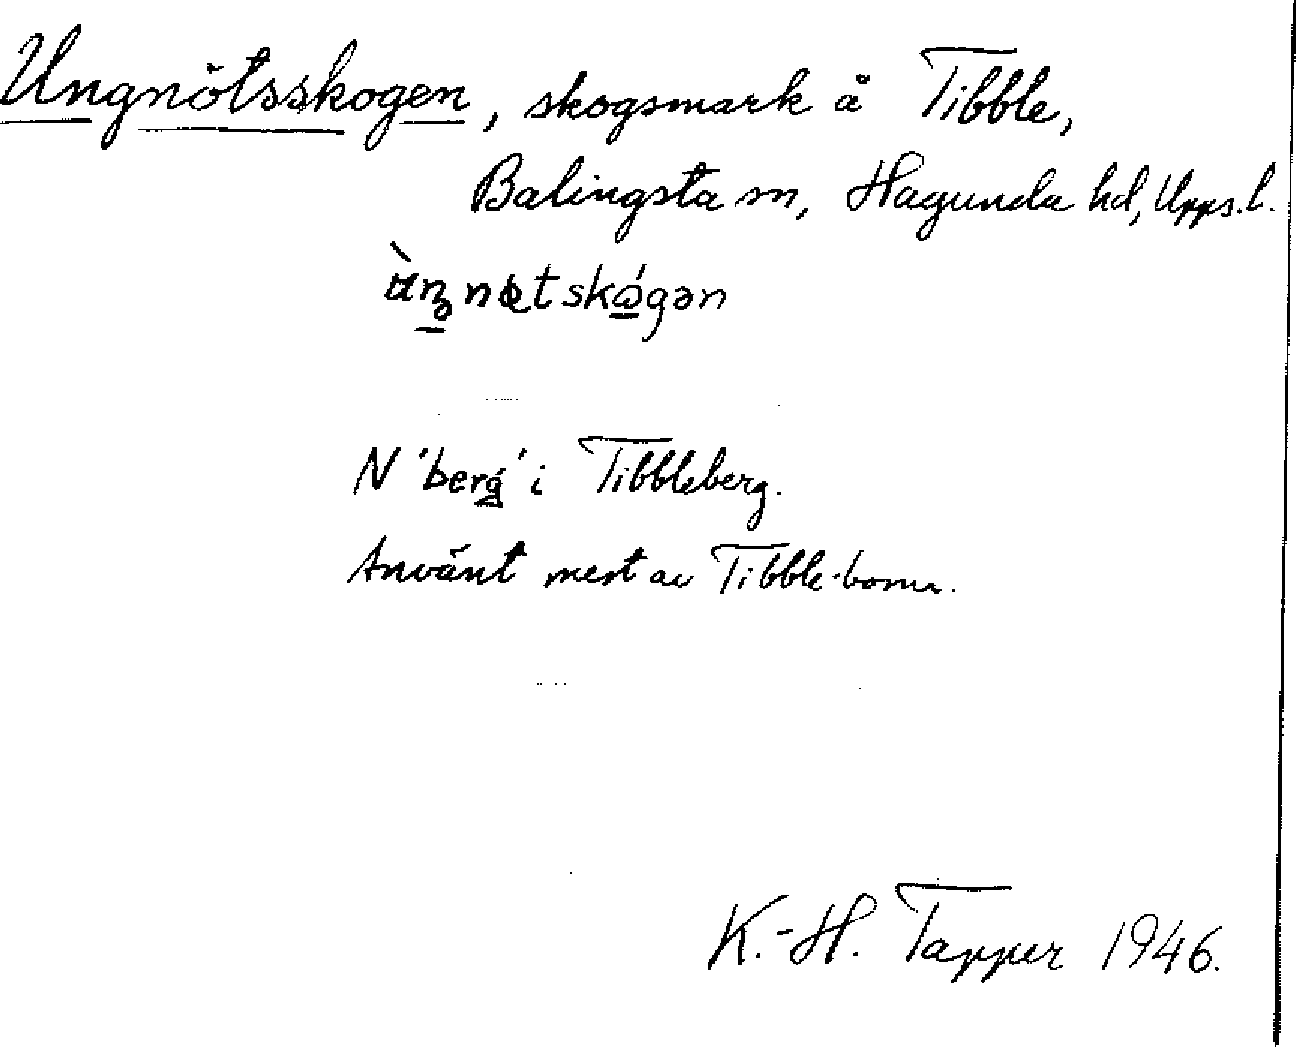 Ungnötsskogen, skogsmark å Tibble,
Balingsta sn, Hagunda hd, Upps. l.
skógən
N 'berg' i Tibbleberg.
Använt mest av Tibble-borna.
K.-H. Tapper 1946.